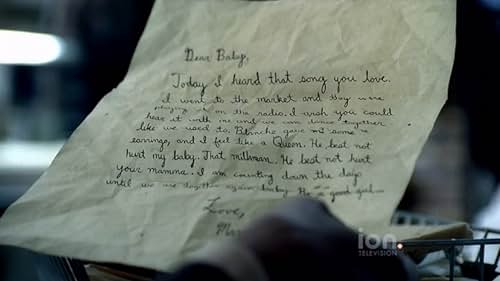 Dear Baby,
Today I heard that song you love.
I went to the market and they were
playing it on the radio. I wish you could
hear it with me and we can dance together
like we used to. Blanche gave me some
earrings, and I feel like a Queen. He beat not
hurt my baby. That milkman. He beat not hurt
your mamma. I am counting down the days
until we are together again baby. a good girl
Love,
ion
TELEVISION